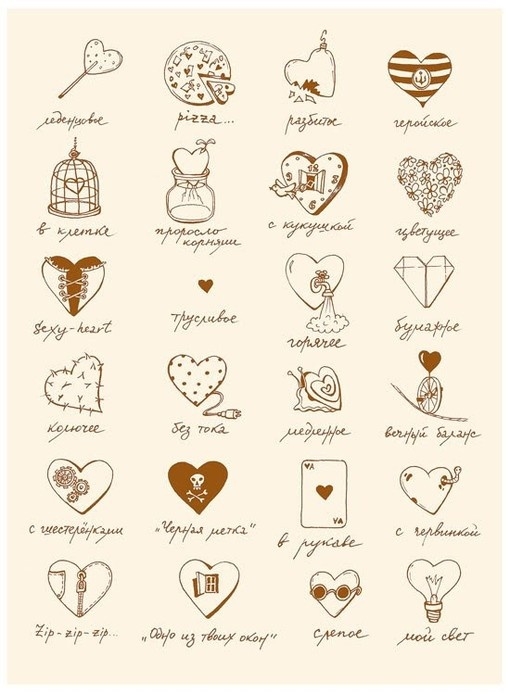 леденцовое
pizza...
разбитое
геройское
в клетке
проросло
корнями
с кукушкой
цветущее
Sexy-heart
трусливое
горячее
бумажное
колючее
без тока
медленное
вечный баланс
с шестерёнками
„Черная метка"
VA
VA
в рукаве
с червинкой
Zip-zip-zip...
„Одно из твоих окон"
слепое
мой свет